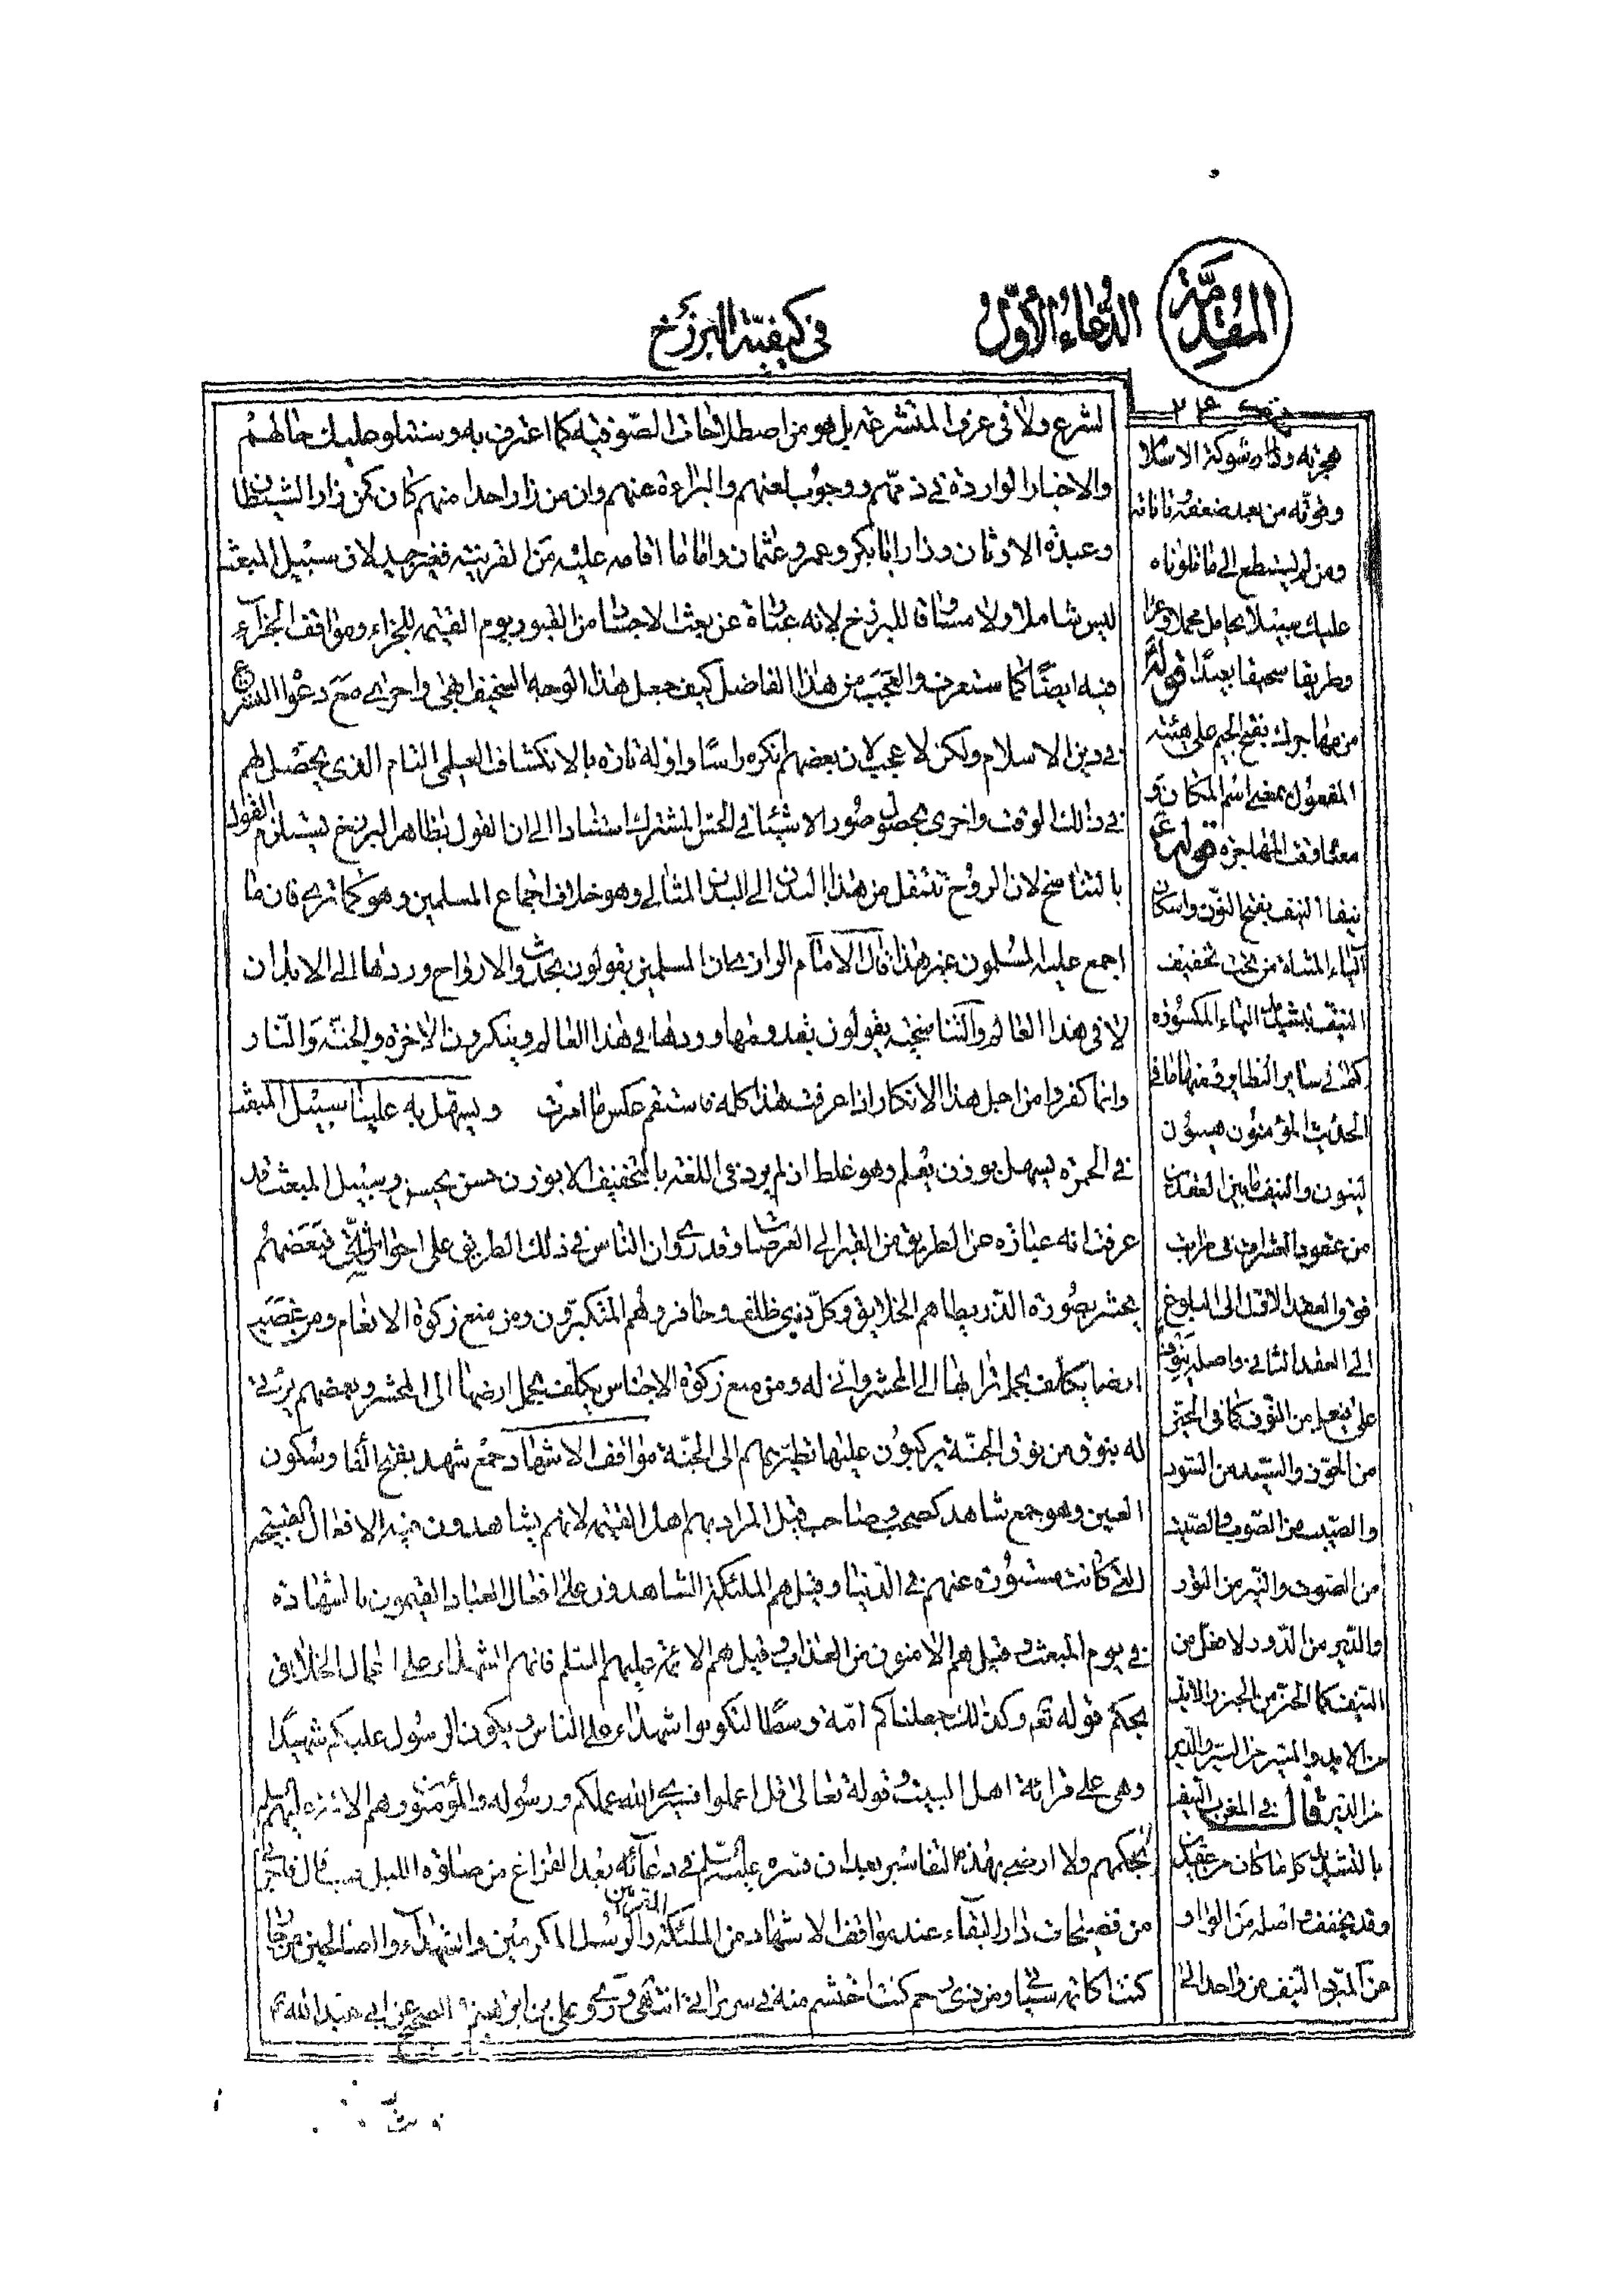 المقدمة
الدعاء الأول
في كيفية البرزخ
لشرع ولا في عرف المتشرعة بل هو من اصطلاحات الصوفية كما اعترف به وسنتلو عليك حالهم
والاخبار الواردة في ذمهم ووجوب لعنهم والبراءة عنهم وان من زار احدا منهم كان كمن زار الشيطان
وعبدة الاوثان وزار ابابكر وعمر وعثمان واما ما اقامه عليه من القرينة فغير جيد لان سبيل المبعث
ليس شاملا ولا مساوقا للبرزخ لانه عبارة عن بعث الاجساد من القبور يوم القيمة للجزاء ومواقف الجزاء
فيه ايضا كما ستعرف والعجب من هذا الفاضل كيف جعل هذا الوجه السخيف اهجى واحرى مع دعوا
في دين الاسلام ولكن لا عجب لان بعضهم انكره راسا واوله تارة بالانكشاف العلمي التام الذي يحصل لهم
في ذلك الوقت واخرى بحصول صور الاشياء في الحس المشترك استنادا الى ان القول بظاهر البرزخ يستلزم القول
بالتناسخ لان الروح تنتقل من هذا البدن الى البدن المثالي وهو خلاف اجماع المسلمين وهو كما ترى فان ما
اجمع عليه المسلمون غير هذا قال الامام الرازي ان المسلمين يقولون بحدوث الارواح وردها الى الابدان
لا في هذا العالم والتناسخية يقولون بقدومها وردها في هذا العالم وينكرون الاخرة والجنة والنار
وانما كفروا من اجل هذا الانكار اذا عرفت هذا كله فاستقم عكس ما امرت ويسهل به علينا سبيل المبعث
في الحمزة يسهل بوزن يعلم وهو غلط ان لم يرد في اللغة بالتخفيف الا بوزن حسن يحسن وسبيل المبعث قد
عرفت انه عبارة عن الطريق من القبر الى العرصات وقد روى ان الناس في ذلك الطريق على احوال شتى فبعضهم
يحشر بصورة الذر يطاهم الخلايق وكل ذي ظلف وحافر وهم المتكبرون ومن منع زكوة الانعام ومن غصب
ارضا يكلف بحمل ترابها الى المحشر وانى له ومن منع زكوة الاجناس يكلف بحمل ارضها الى المحشر وبعضهم يؤتى
له بنوق من نوق الجنة يركبون عليها تطير بهم الى الجنة مواقف الاشهاد جمع شهد بفتح الفا وسكون
العين وهو جمع شاهد كصحب وصاحب قيل المراد بهم اهل القيمة لانهم يشاهدون فيه الافعال القبيحة
التي كانت مستورة عنهم في الدنيا وقيل هم الملئكة الشاهدون على افعال العباد القيمون بالشهادة
في يوم المبعث وقيل هم الامنون من العذاب وقيل هم الائمة عليهم السلم فانهم الشهداء على اعمال الخلائق
بحكم قوله تعم وكذلك جعلناكم امة وسطا لتكونوا شهداء على الناس ويكون الرسول عليكم شهيدا
وهي على قرائة اهل البيت وقوله تعالى قل اعملوا فسيرى الله عملكم ورسوله والمؤمنون وهم الائمة عليهم السلم
بحكمهم ولا ارضى بهذه التفاسير بعد ان فسره عليه السلم في دعائه بعد الفراغ من صلوة الليل
من فضيحات دار البقاء عند مواقف الاشهاد من الملئكة المقربين والرسل المكرمين والشهداء والصالحين من جار
كنت اكاتمه سيئاتي ومن ذي رحم كنت احتشم منه في سريراتي انتهى وروى علي بن ابراهيم في الصحيح عن ابي عبد الله ع
هجرته وزاد شوكة الاسلام
وقوته من بعد ضعفه
ومن لم يستطع الى ما تلوناه
عليك سبيلا
وطريقا سحيقا بعيدا قوله
من مهاجرك بفتح الجيم على هيئة
المفعول بمعنى اسم المكان و
المهاجرة قوله ع
نيفا النيف بفتح النون واسكان
الياء المثناة من تحت تخفيف
النيف بتشديد الياء المكسورة
كما في سائر النظاير
الحديث المؤمنون هينون
لينون والنيف ما بين العقدين
من عقود العشرات
فوق العقد الاول الى البلوغ
الى العقد الثاني واصله
من النوف كما في الحيز
من الحوز والسيد من السود
والصيب من الصوب والصيت
من الصوت والنير من النور
والدير من الدور لا فعل من
النيف كما الحيز من الحيز
قال في المغرب النيف
بالتشديد كل ما كان بين عقدين
وقد يخفف واصله من الواو
عن المبرد النيف من واحد الى